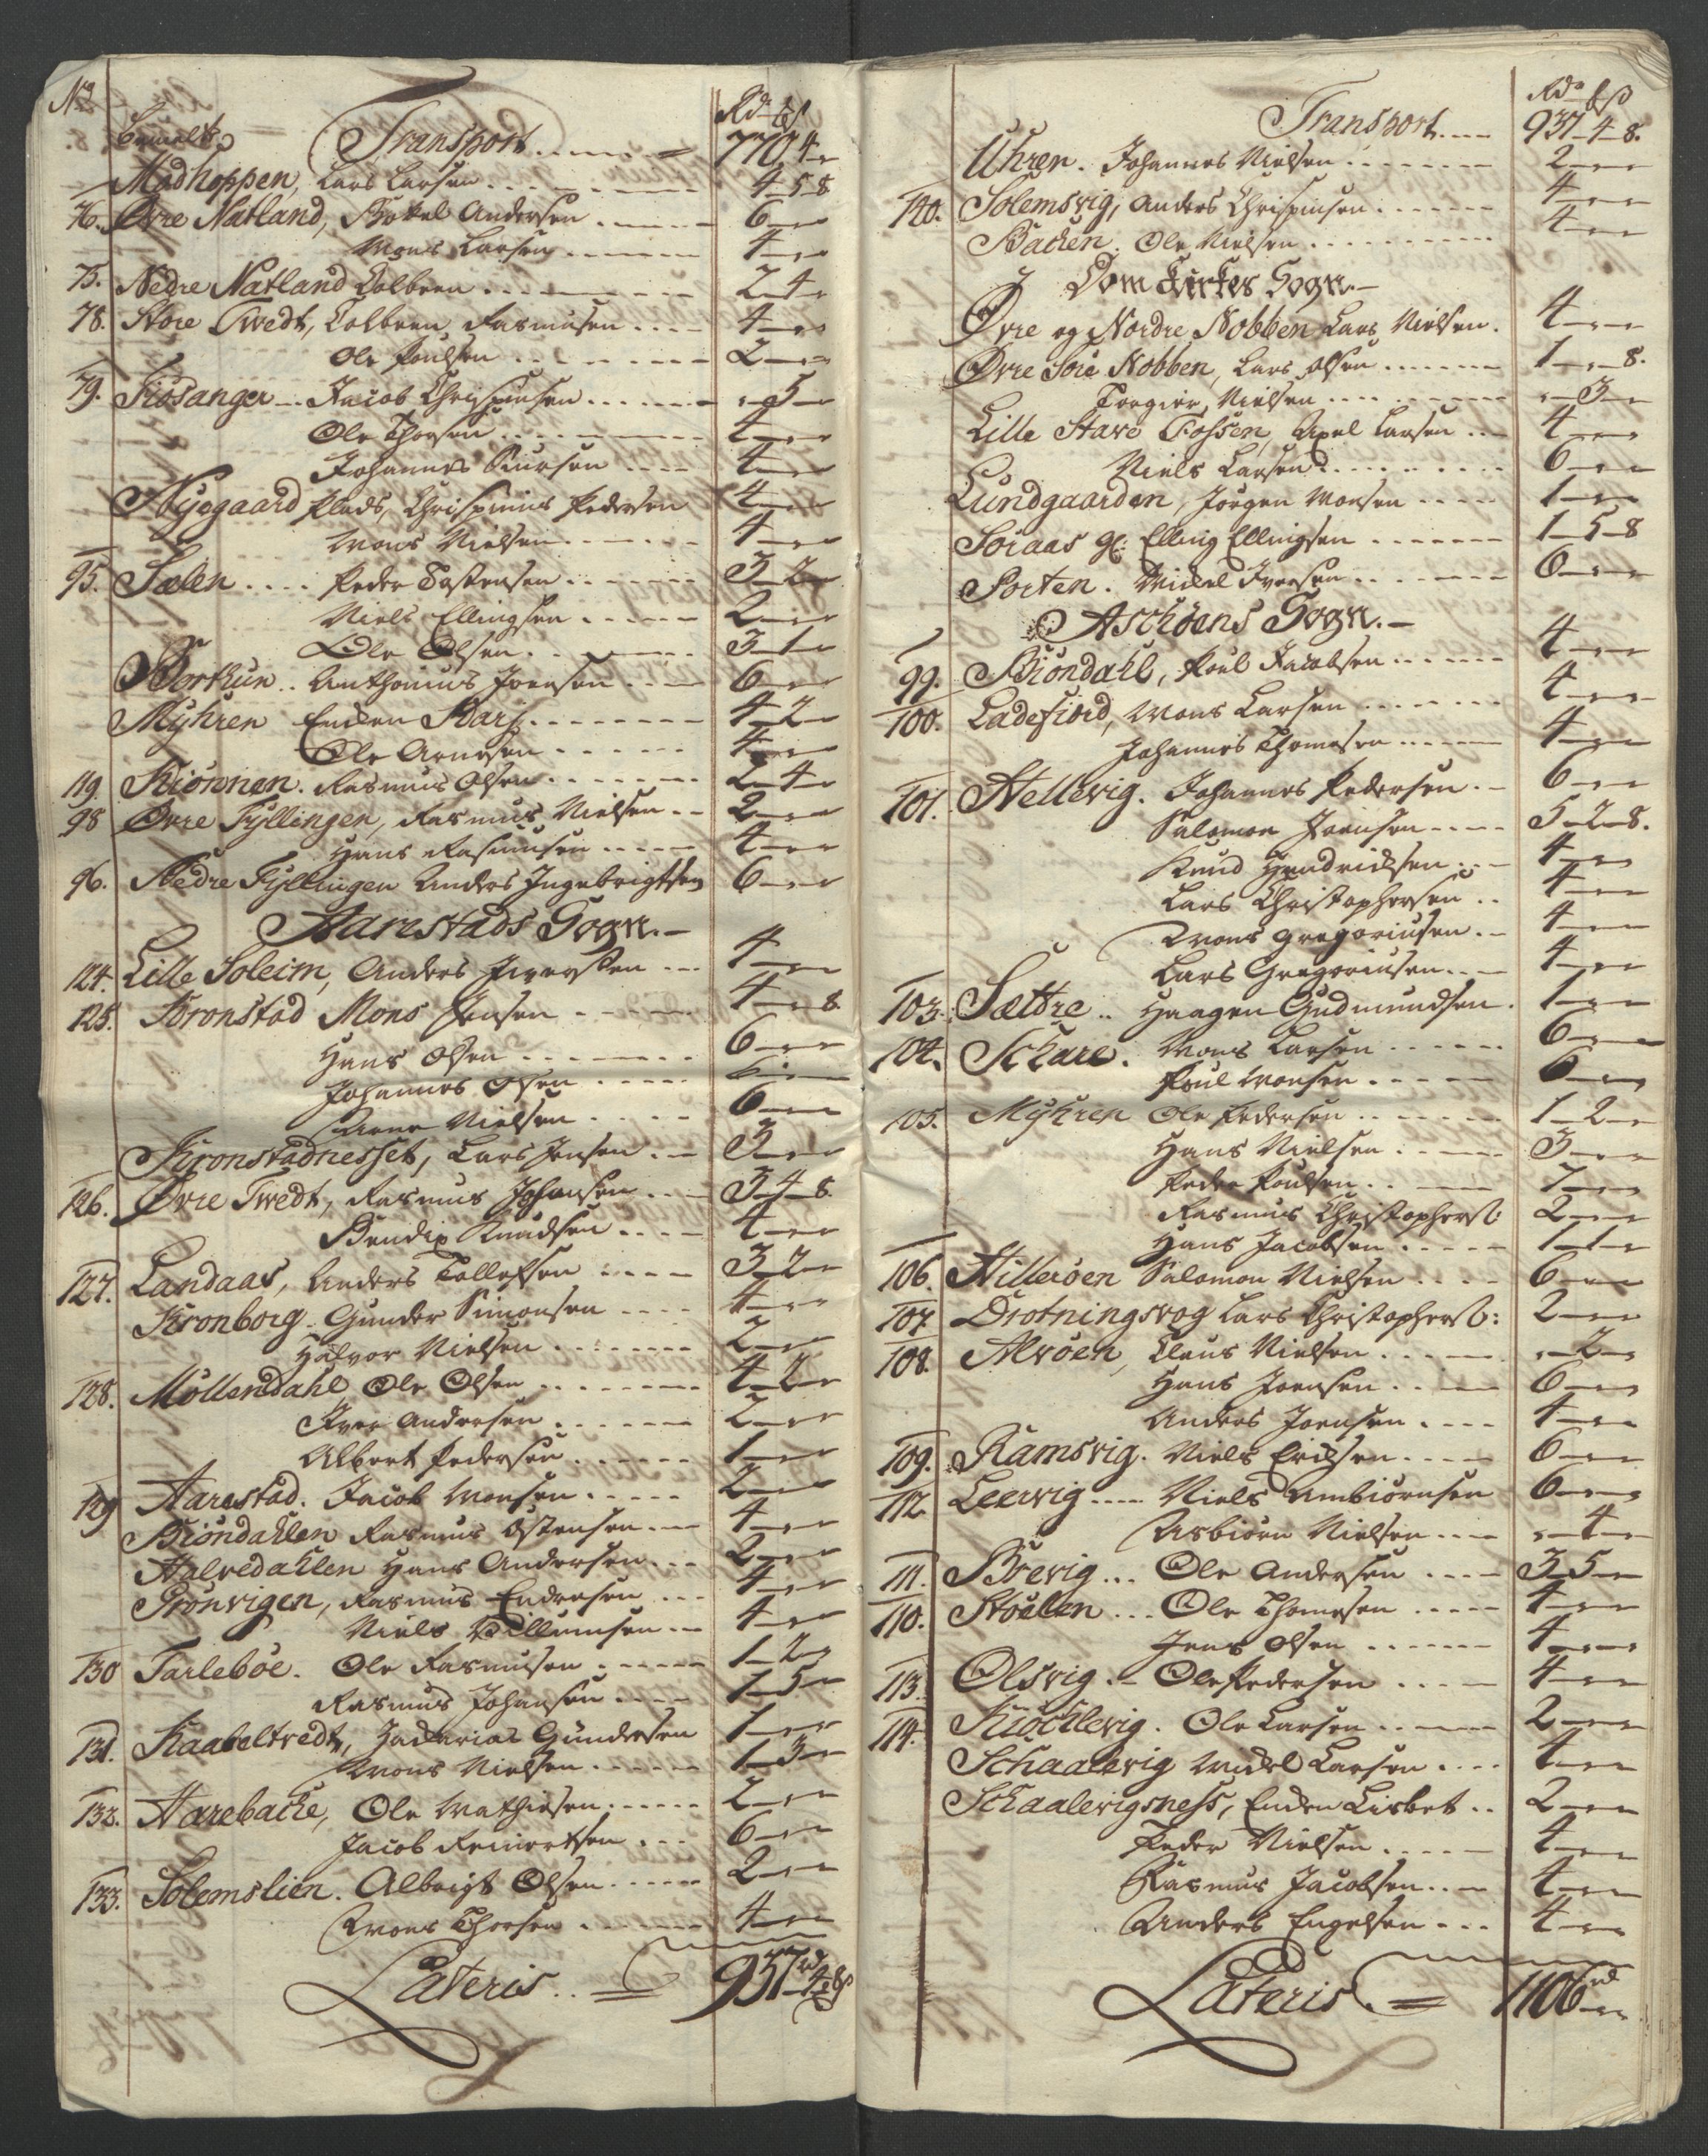 No Rd ß
Transport 770 4 "
Madhoppen, Lars Larsen 4 5 8
76. Øvre Natland, Botel Andersen 6 " "
Mons Larsen 4 " "
75. Nedre Natland Colbeen 2 4 "
78. Store Twedt, Colbeen Rasmusen 4 " "
Ole Poulsen 2 " "
79. Fiøsanger Jacob Chrispinusen " 5 "
Ole Thorsen 4 " "
Johannes Siursen 4 " "
Nyegaard Plads, Chrispinius Pedersen 4 " "
Mons Nielsen 4 " "
95. Sælen Peder Tostensen 3 2 "
Niels Ellingsen 2 " "
Ole Olsen 3 1 "
Bortkun Anthonius Joensen 6 " "
Myhren Enken Kari 4 2 "
Ole Arnesen 4 " "
119. Kiønnen. Rasmus Olsen 2 4 "
98 Øvre Fyllingen, Rasmus Nielsen 2 " "
Hans Rasmusen 4 " "
96. Nedre Fyllingen Anders Ingebrigtsen 6 " "
Aarestads Sogn.
124. Lille Soleim, Anders Iversen 4 " "
125. Kronstad Mons Jensen 4 " 8
Hans Olsen 6 " "
Johannes Olsen 6 " "
Arne Nielsen 6 " "
Kronstadnesset, Lars Jensen 3 " "
126. Øvre Twedt, Rasmus Johansen 3 4 8
Bendix Knudsen 4 " "
127. Landaas, Anders Tollefsen 3 2 "
Kronborg Gunder Simonsen 4 " "
Halvor Nielsen 2 " "
128. Møllendahl Ole Olsen 4 2 "
Iver Andersen 2 " "
Albert Pedersen 1 " "
129 Aarestad. Jacob Monsen 2 " "
Biøndahlen Rasmus Ostensen 4 " "
Halvedahlen Hans Andersen 2 " "
Grønvigen, Rasmus Endresen 4 " "
Niels Villumsen 4 " "
130 Tarlebøe. Ole Rasmusen 1 2 "
Rasmus Johansen 1 5 "
131. Kaabeltvedt, Zacharias Gundersen 1 " "
Mons Nielsen 1 3 "
132. Harebacke, Ole Mathiesen 2 " "
Jacob Reinertsen 6 " "
133. Solemslien. Albrigt Olsen 2 " "
Mons Thorsen 4 " "
Lateris 937 rd 4 8 ß
Rd ß
Transport 937 4 8.
Uhren. Johannes Nielsen 2 " "
120. Solemsvig, Anders Chrispinusen 4 " "
Backen. Ole Nielsen 4 " "
Domkirkes Sogn.
Øvre og Nordre Nobben Lars Nielsen 4 " "
Øvre Søre Nobben, Lars Olsen 1 " 8.
Torgier Nielsen " 3 "
Lille Stave Fossen, Axel Larsen 4 " "
Niels Larsen 6 " "
Lundgaarden, Jørgen Monsen 1 " "
Søraas gl: Elling Ellingsen 1 5 8
Sorten. Michel Iversen 6 " "
Aschøens Sogn.
99. Biøndahl, Poul Jacobsen 4 " "
100. Ladefiord, Mons Larsen 4 " "
Johannes Thomesen 4 " "
101. Hellevig. Johannes Pedersen 6 " "
Salomon Joensen 5 2 8.
Knud Hendrichsen 4 " "
Lars Christophersen 4 " "
Mons Gregoriusen 4 " "
Lars Gregoriusen 4 " "
103. Sættre Haagen Gudmundsen 1 " "
104. Schare. Mons Larsen 6 " "
Poul Monsen 6 " "
105. Myhren Ole Pedersen 1 2 "
Hans Nielsen 3 " "
Peder Poulsen 7 " "
Rasmus Christophers: 2 " "
Hans Jacobsen 1 1 "
106. Hillerøen Salomon Nielsen 6 " "
107. Drotningsvog Lars Christophers: 2 " "
108. Alvøen, Claus Nielsen " 2 "
Hans Joensen 6 " "
Anders Joensen 4 " "
109. Ramsvig. Niels Erichsen 6 " "
112. Leervig Niels Ambiørnsen 6 " "
Asbiørn Nielsen " 4 "
111. Brevig Ole Andersen 3 5 "
110. Støelen Ole Thomesen 4 " "
Jens Olsen 4 " "
113. Olsvig. Ole Pedersen 4 " "
114. Kiøchlevig. Ole Larsen 2 " "
Schaalevig Michel Larsen 4 " "
Schaalevigsness, Enken Lisbet 2 " "
Peder Nielsen 4 " "
Rasmus Jacobsen 4 " "
Anders Engelsen 4 " "
Lateris 1106 rd " "